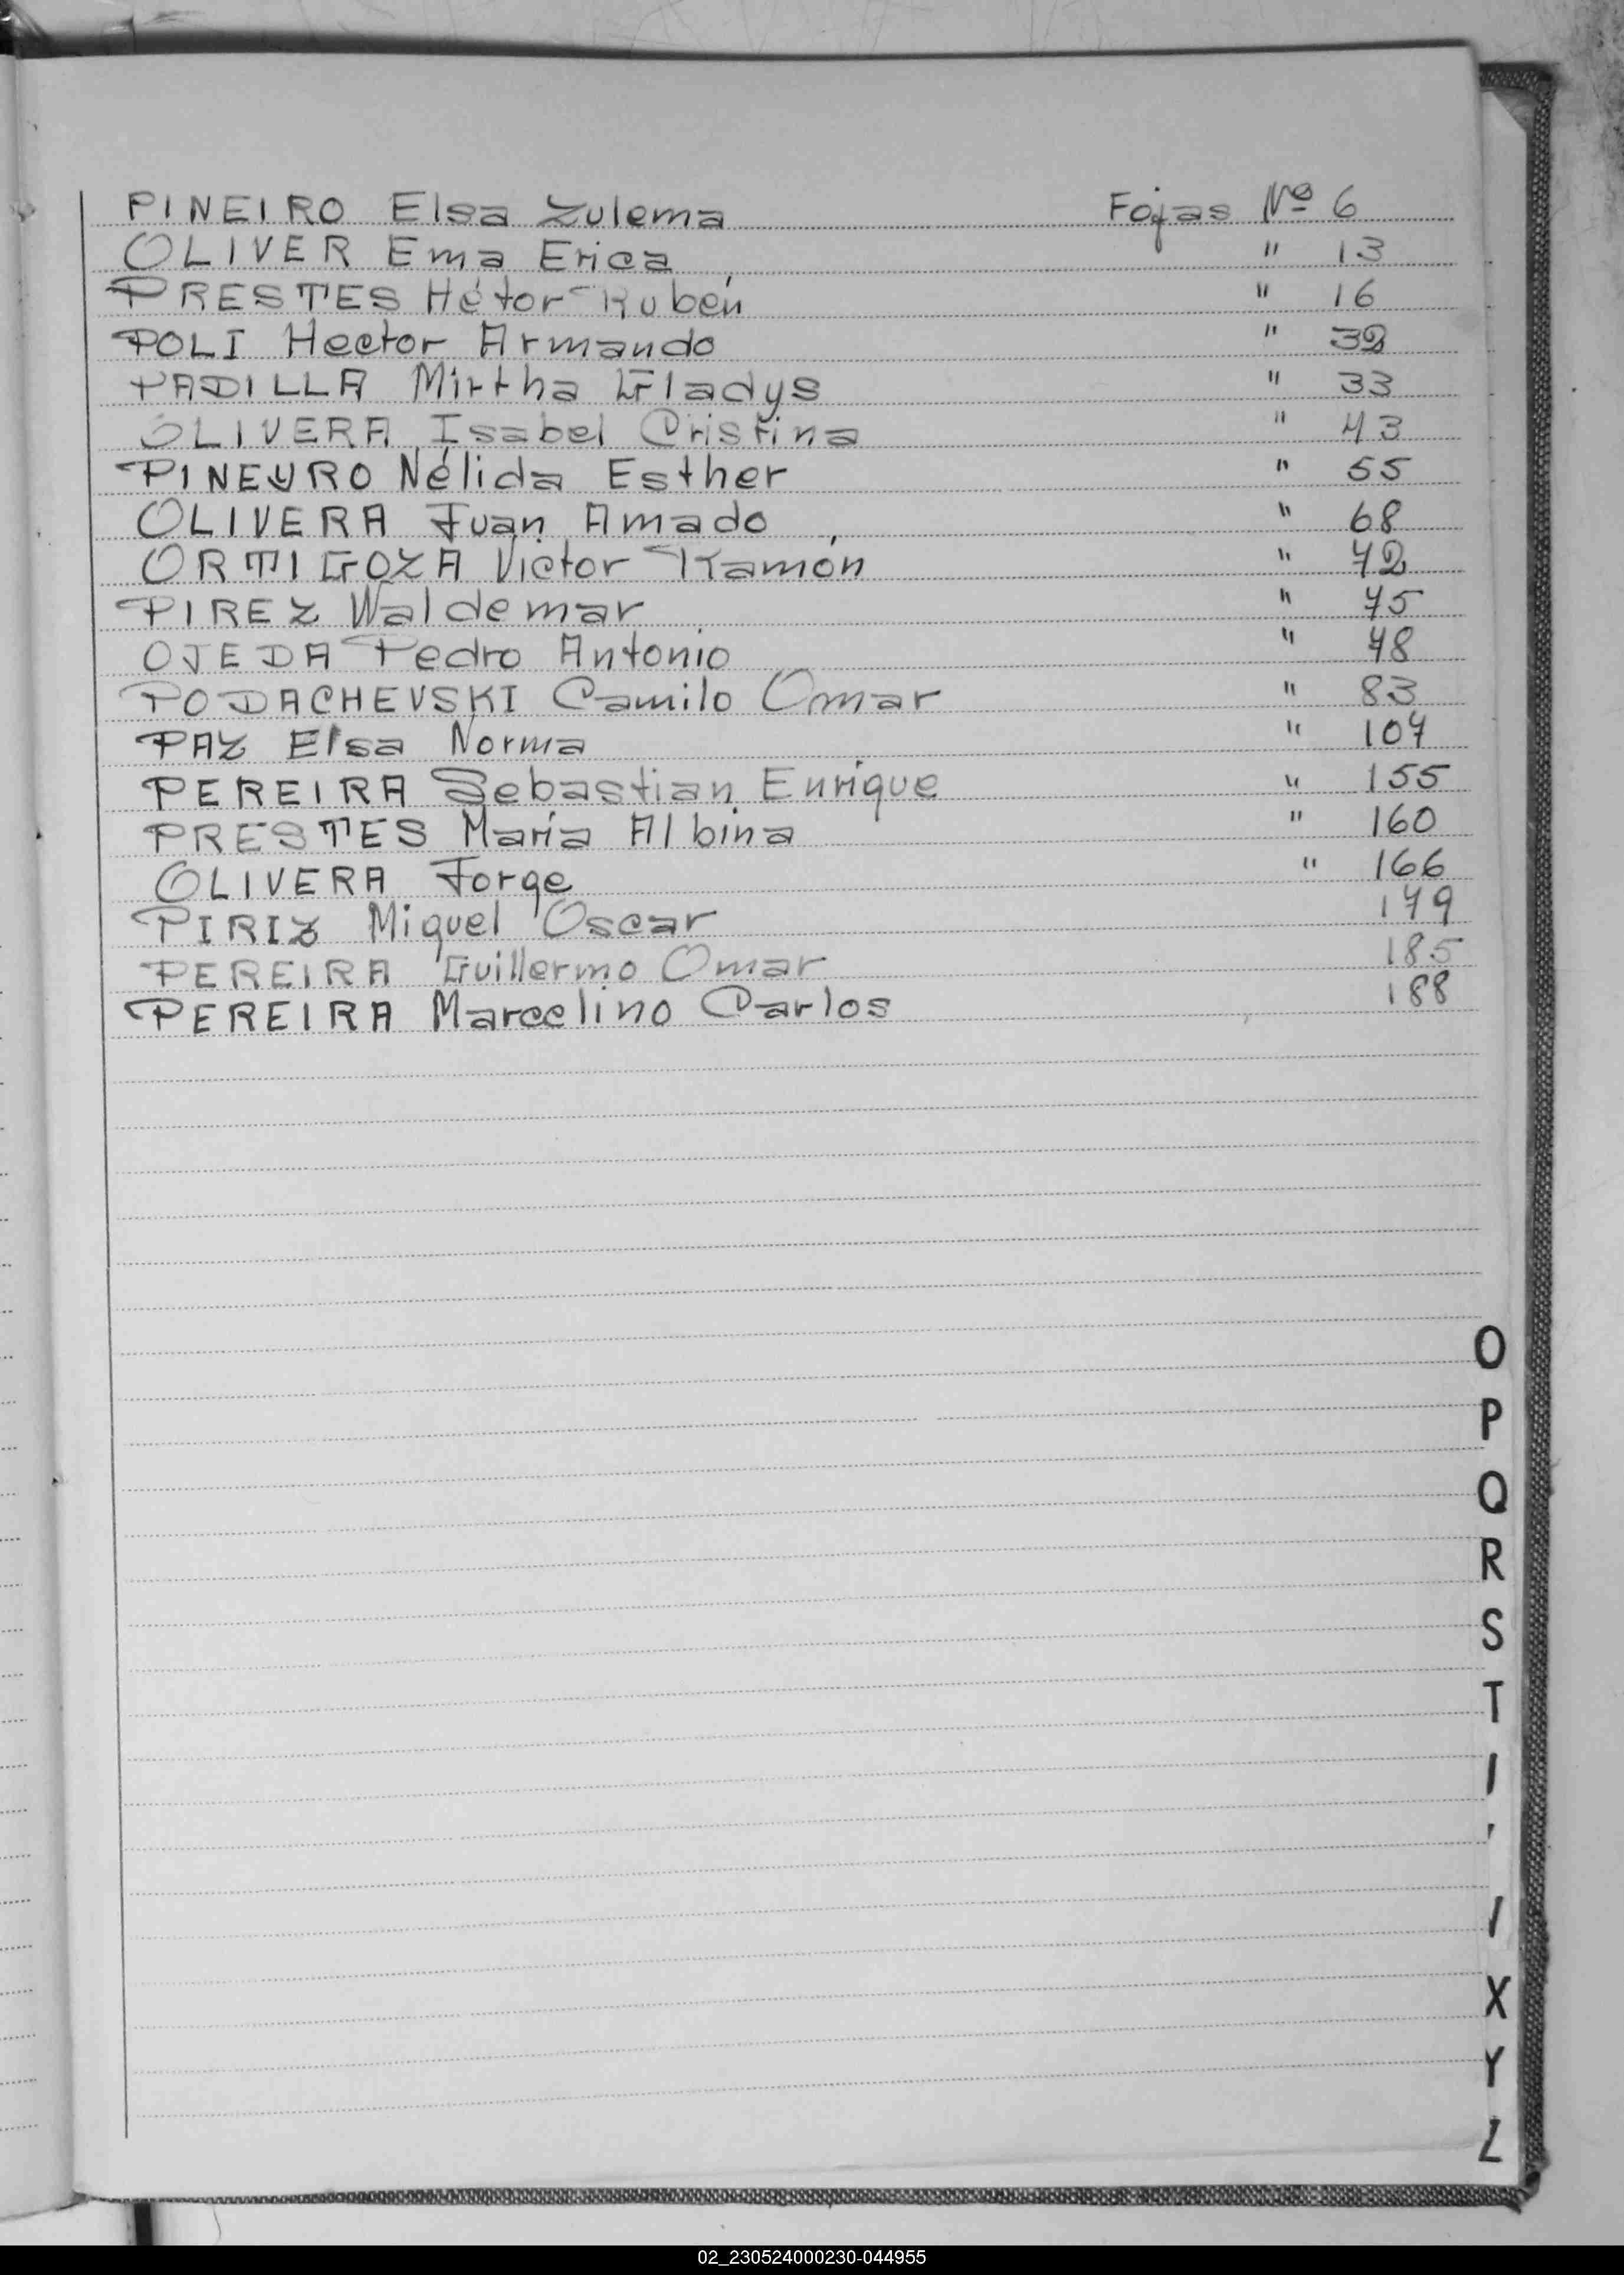 PINEIRO Elsa Zulema Fojas Nº 6
OLIVER Ema Erica " 13
PRESTES Hétor Rubén " 16
POLI Hector Armando " 32
PADILLA Mirtha Gladys " 33
OLIVERA Isabel Cristina " 43
PINEYRO Nélida Esther " 55
OLIVERA Juan Amado " 68
ORTIGOZA Victor Ramón " 72
PIREZ Waldemar " 75
OJEDA Pedro Antonio " 78
PODACHEVSKI Camilo Omar " 83
PAZ Elsa Norma " 107
PEREIRA Sebastian Enrique " 155
PRESTES María Albina " 160
OLIVERA Jorge " 166
PIRIZ Miguel Oscar 179
PEREIRA Guillermo Omar 185
PEREIRA Marcelino Carlos 188
O
P
Q
R
S
T
X
Y
Z
02_230524000230-044955